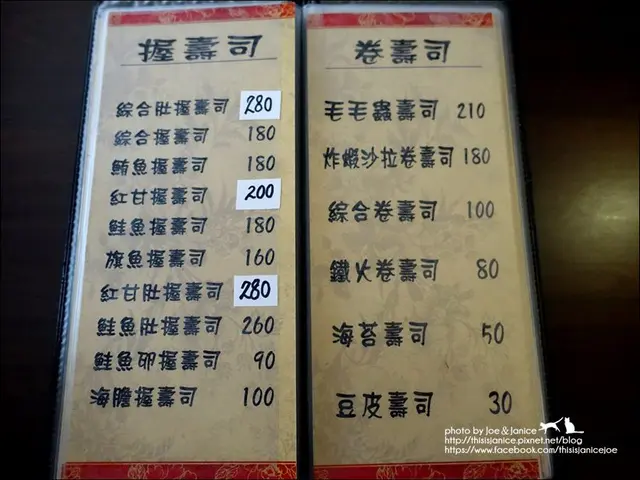 握壽司
綜合肚握壽司 280
綜合握壽司 180
鮪魚握壽司 180
紅甘握壽司 200
鮭魚握壽司 180
旗魚握壽司 160
紅甘肚握壽司 280
鮭魚肚握壽司 260
鮭魚卵握壽司 90
海膽握壽司 100
卷壽司
毛毛蟲壽司 210
炸蝦沙拉卷壽司 180
綜合卷壽司 100
鐵火卷壽司 80
海苔壽司 50
豆皮壽司 30
photo by Joe & Janice
http://thisisjanice.pixnet.net/blog
https://www.facebook.com/thisisjanicejoe